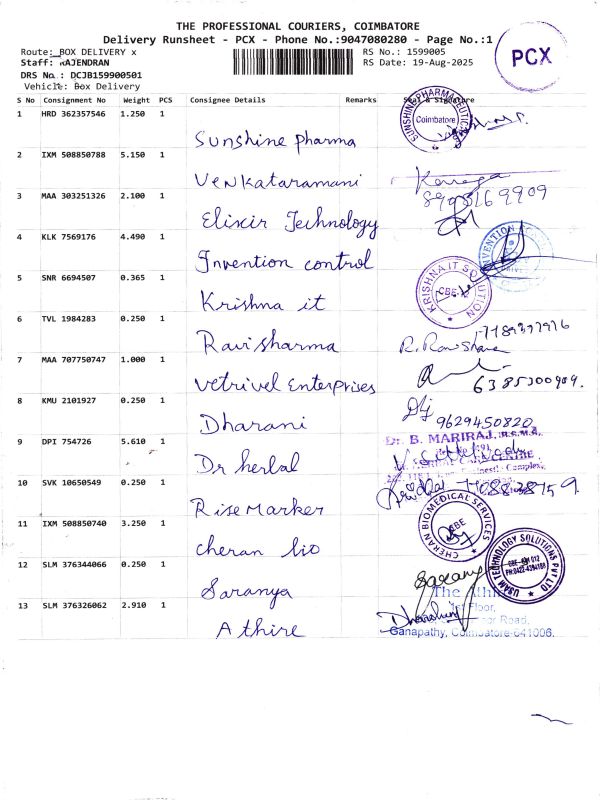 THE PROFESSIONAL COURIERS, COIMBATORE
Delivery Runsheet - PCX - Phone No.:9047080280 - Page No.:1
PCX
Route: BOX DELIVERY x
RS No.: 1599005
Staff: RAJENDRAN
RS Date: 19-Aug-2025
DRS No.: DCJB159900501
Vehicle: Box Delivery
S No Consignment No Weight PCS Consignee Details Remarks Seal & Signature
1 HRD 362357546 1.250 1
Sunshine pharma
SUNSHINE PHARMACEUTICALS Coimbatore
2 IXM 508850788 5.150 1
Venkataramani
3 MAA 303251326 2.100 1
Elixir Technology
4 KLK 7569176 4.490 1
Invention control
5 SNR 6694507 0.365 1
Krishna it
KRISHNA IT SOLUTION CBE
6 TVL 1984283 0.250 1
Ravi sharma
7 MAA 707750747 1.000 1
vetrivel Enterprises
6385300909.
8 KMU 2101927 0.250 1
Dharani
9629450820
9 DPI 754726 5.610 1
Dr herbal
Dr. B. MARIRAJ, B.S.M.S.,
10 SVK 10650549 0.250 1
Rise Marker
11 IXM 508850740 3.250 1
cheran bio
CHERAN BIOMEDICAL SERVICES CBE
12 SLM 376344066 0.250 1
Saranya
Saranya
TECHNOLOGY SOLUTIONS PVT LTD
13 SLM 376326062 2.910 1
Athire
The Athi
1st Floor,
Road,
Ganapathy, Coimbatore-641006.